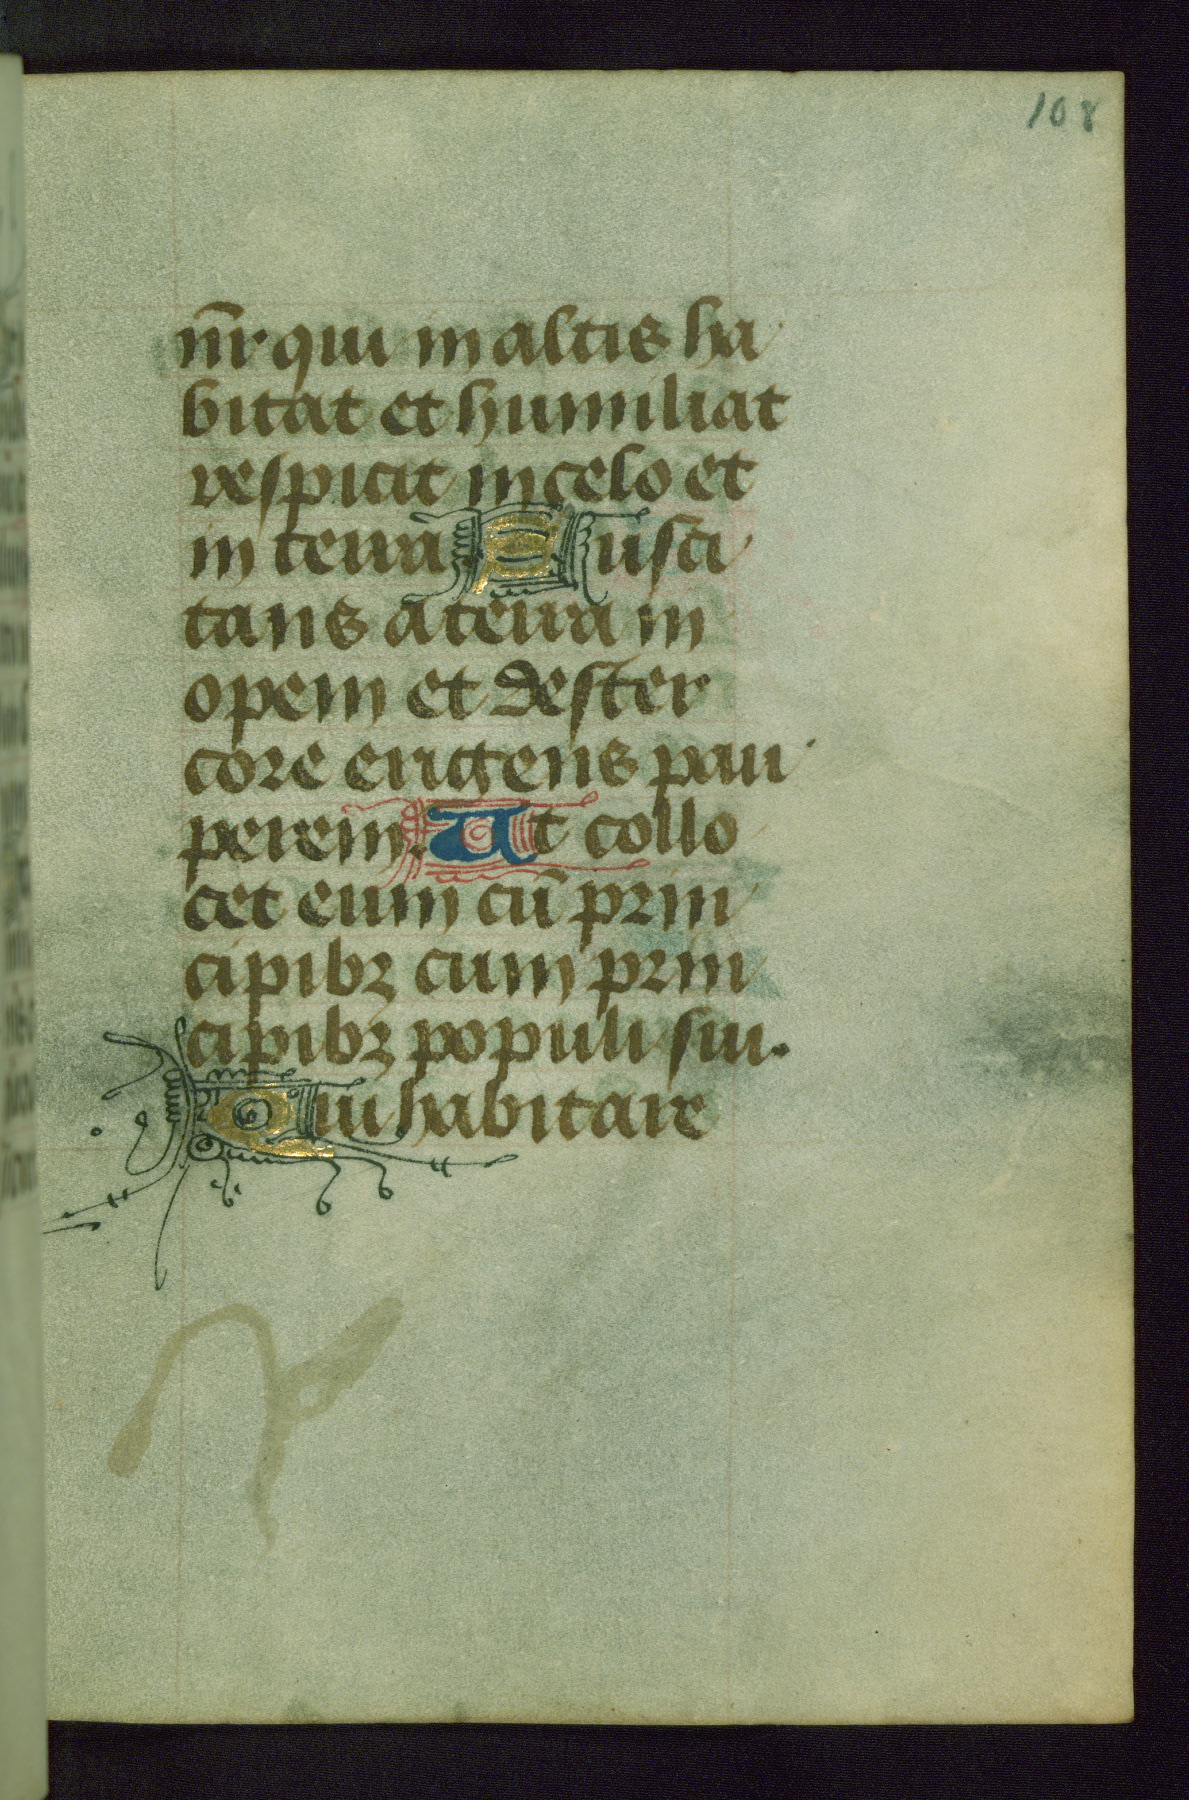 108
nr̄ qui in altis ha
bitat et humiliat
respicit in celo et
in terra. Susci
tans a terra in
opem et de ster
core erigens pau
perem. Ut collo
cet eum cū prin
cipibꝫ cum prin
cipibꝫ populi sui.
Qui habitare